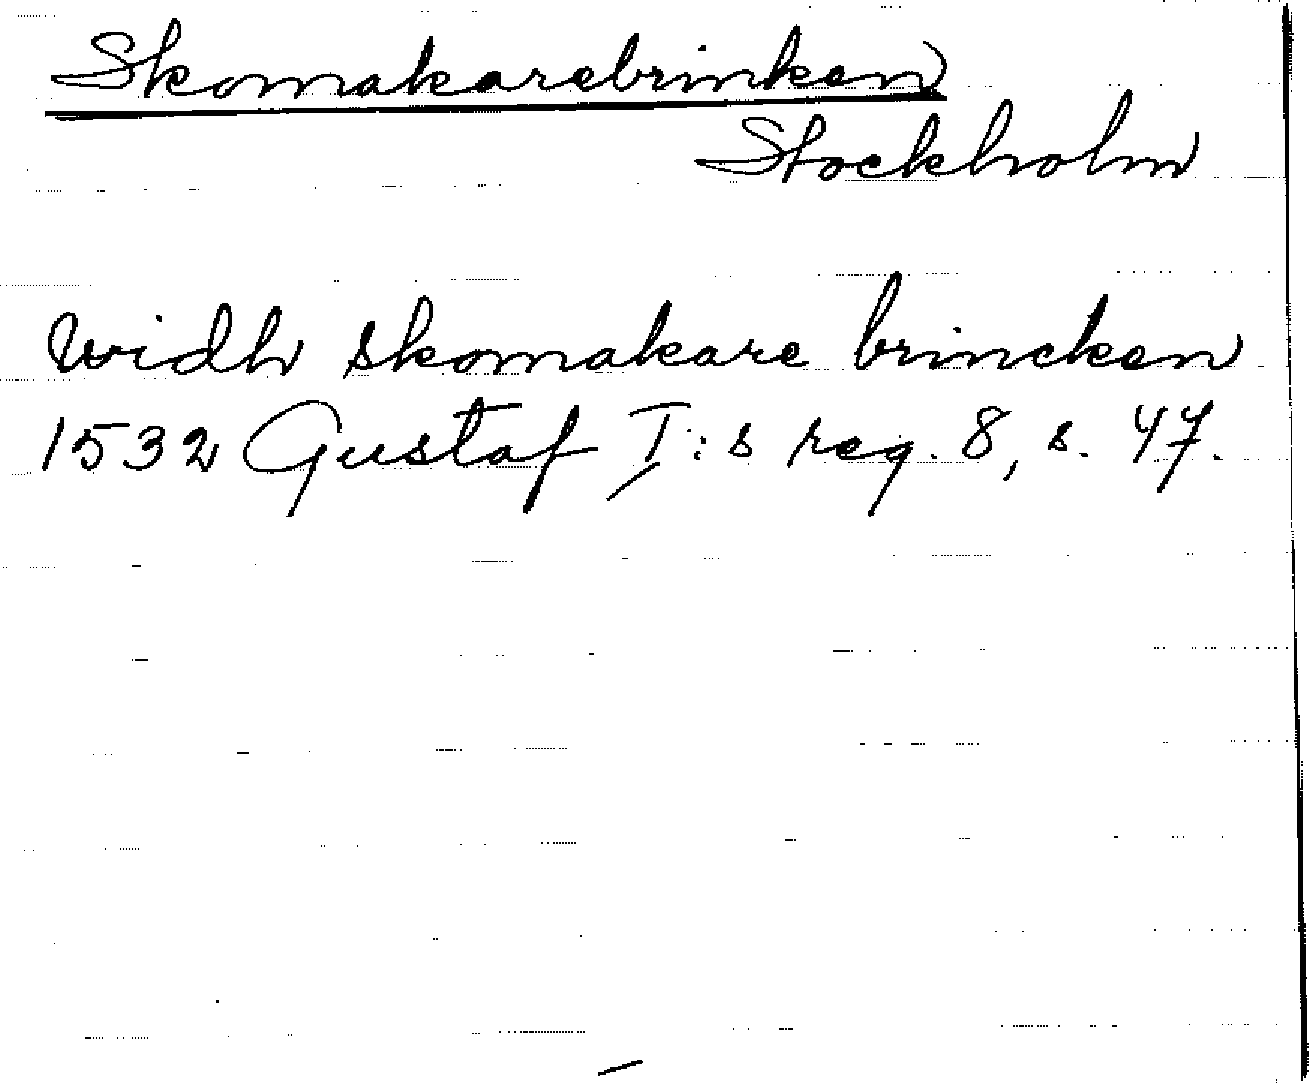 Skomakarebrinken
Stockholm
widh skomakare brincken
1532 Gustaf I:s reg. 8, s. 47.